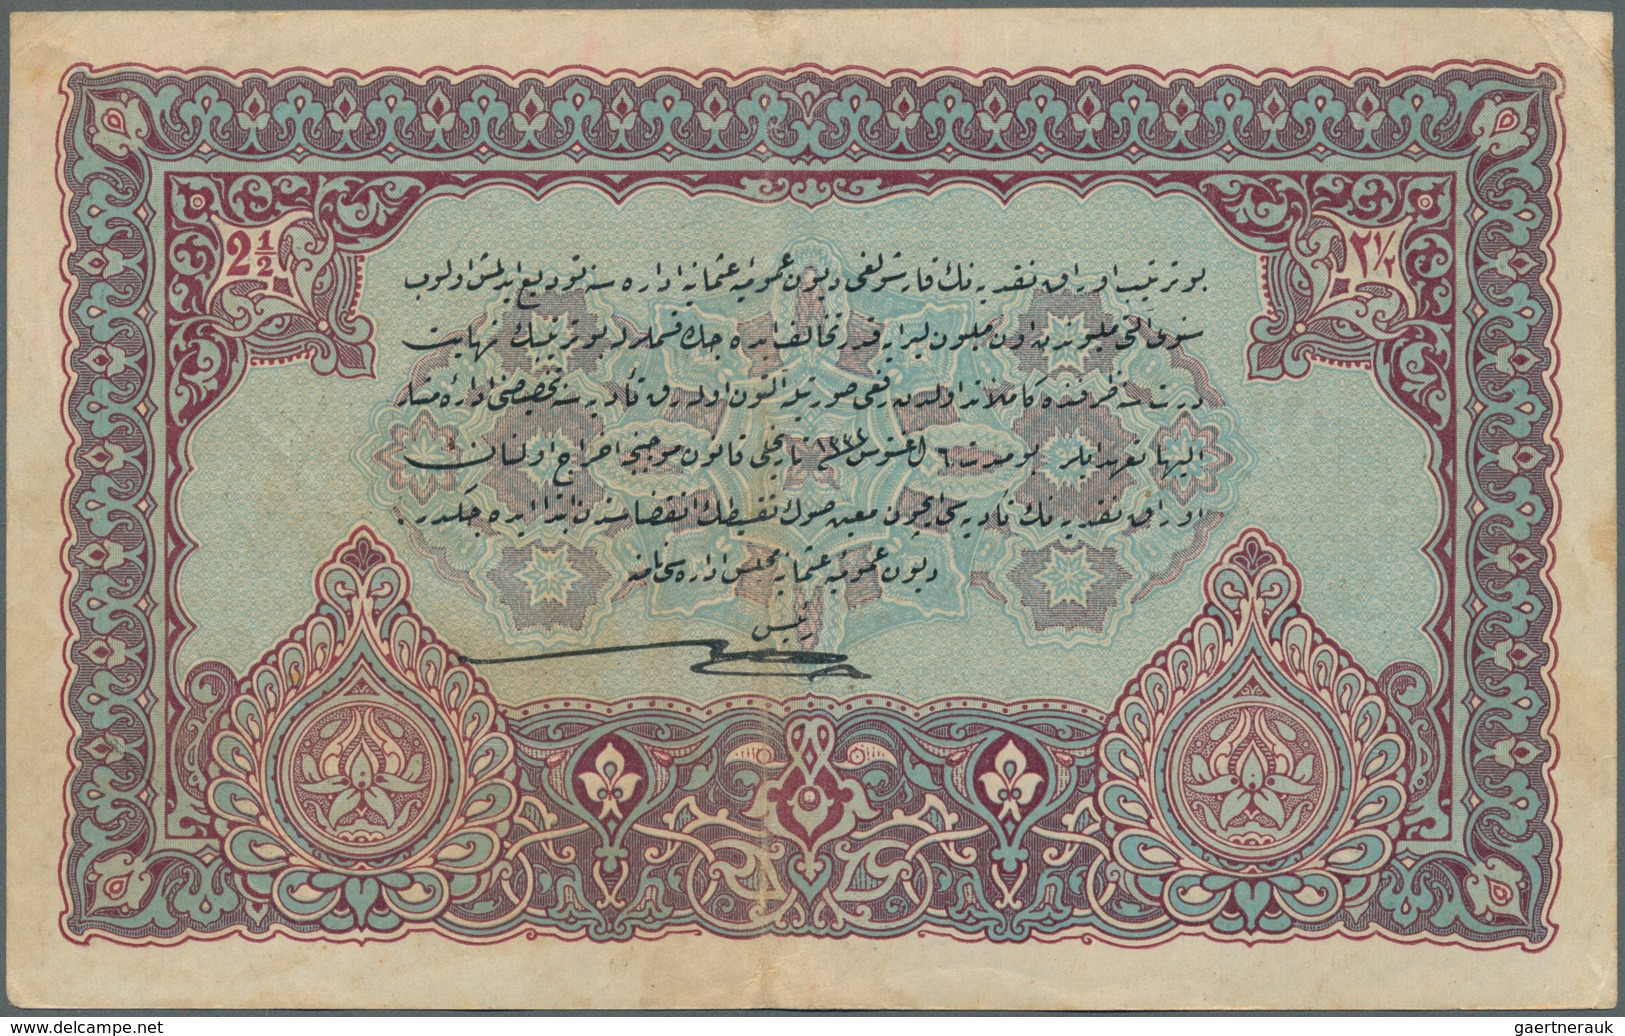 2 1/2
٢ ١/٢
بو ترتیب اوراق نقدیه نك قارشولغی دیون عمومیهٔ عثمانیه اداره سنه تودیع ایدلمش اولوب
سنوی التی ملیوندن اون ملیون لیرایه قدر تخالف ایده جك قسملرله بو ترتیبك نهایت
درت سنه ظرفنده كاملاً اولدن رفعی صورتیله التون اوله رق تأدیه سنه تخصیصنی اداره مشار
الیها تعهد ایلر بو مدت ٦ اغستوس ١٣٣٢ تاریخلی قانون موجبنجه اخراج اولنان
اوراق نقدیه نك تأدیه سی ایچون معین صوك تقسیطك انقضاسندن ابتدا ایده جكدر.
دیون عمومیهٔ عثمانیه مجلس اداره سی نامنه
رئیس
delcampe.net
gaertnerauk